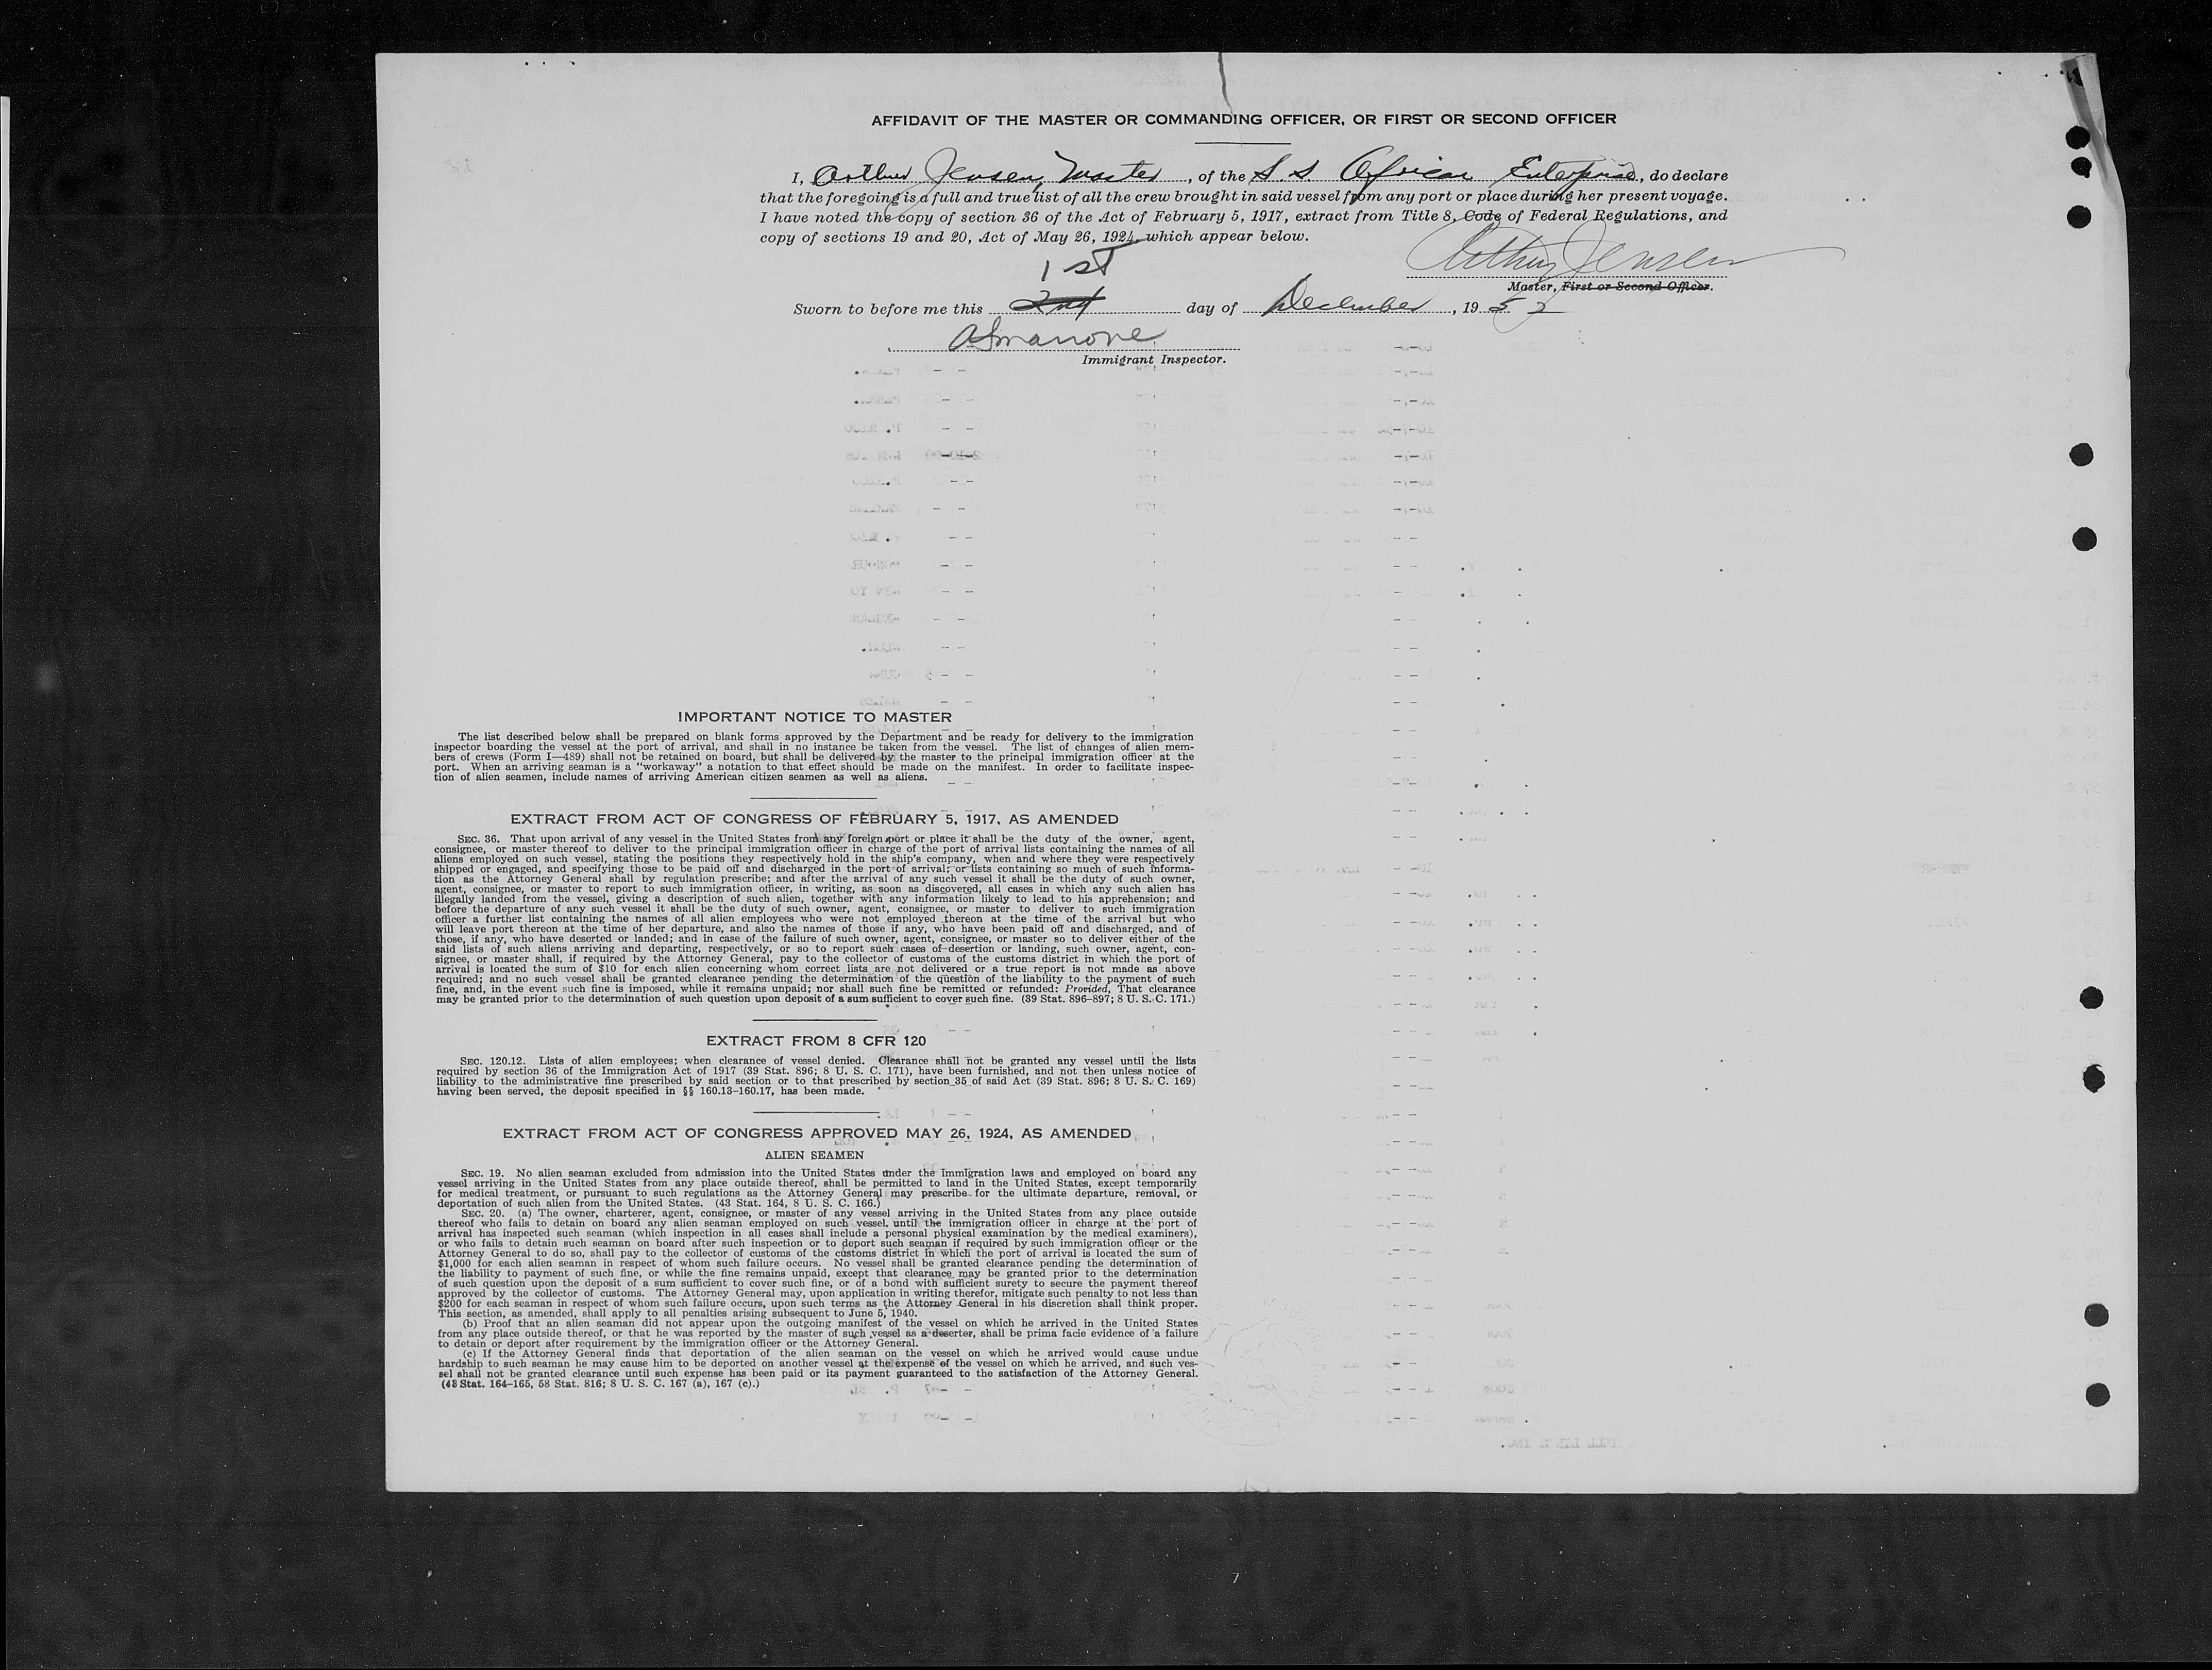 AFFIDAVIT OF THE MASTER OR COMMANDING OFFICER, OR FIRST OR SECOND OFFICER
I, Arthur Jensen, Master, of the S. S. African Enterprise, do declare
that the foregoing is a full and true list of all the crew brought in said vessel from any port or place during her present voyage.
I have noted the copy of section 36 of the Act of February 5, 1917, extract from Title 8, Code of Federal Regulations, and
copy of sections 19 and 20, Act of May 26, 1924, which appear below.
Arthur Jensen
Master, First or Second Officer.
1st
Sworn to before me this 2nd day of December, 1952
Immigrant Inspector.
IMPORTANT NOTICE TO MASTER
The list described below shall be prepared on blank forms approved by the Department and be ready for delivery to the immigration
inspector boarding the vessel at the port of arrival, and shall in no instance be taken from the vessel. The list of changes of alien mem-
bers of crews (Form I—489) shall not be retained on board, but shall be delivered by the master to the principal immigration officer at the
port. When an arriving seaman is a "workaway" a notation to that effect should be made on the manifest. In order to facilitate inspec-
tion of alien seamen, include names of arriving American citizen seamen as well as aliens.
EXTRACT FROM ACT OF CONGRESS OF FEBRUARY 5, 1917, AS AMENDED
SEC. 36. That upon arrival of any vessel in the United States from any foreign port or place it shall be the duty of the owner, agent,
consignee, or master thereof to deliver to the principal immigration officer in charge of the port of arrival lists containing the names of all
aliens employed on such vessel, stating the positions they respectively hold in the ship's company, when and where they were respectively
shipped or engaged, and specifying those to be paid off and discharged in the port of arrival; or lists containing so much of such informa-
tion as the Attorney General shall by regulation prescribe; and after the arrival of any such vessel it shall be the duty of such owner,
agent, consignee, or master to report to such immigration officer, in writing, as soon as discovered, all cases in which any such alien has
illegally landed from the vessel, giving a description of such alien, together with any information likely to lead to his apprehension; and
before the departure of any such vessel it shall be the duty of such owner, agent, consignee, or master to deliver to such immigration
officer a further list containing the names of all alien employees who were not employed thereon at the time of the arrival but who
will leave port thereon at the time of her departure, and also the names of those if any, who have been paid off and discharged, and of
those, if any, who have deserted or landed; and in case of the failure of such owner, agent, consignee, or master so to deliver either of the
said lists of such aliens arriving and departing, respectively, or so to report such cases of desertion or landing, such owner, agent, con-
signee, or master shall, if required by the Attorney General, pay to the collector of customs of the customs district in which the port of
arrival is located the sum of $10 for each alien concerning whom correct lists are not delivered or a true report is not made as above
required; and no such vessel shall be granted clearance pending the determination of the question of the liability to the payment of such
fine, and, in the event such fine is imposed, while it remains unpaid; nor shall such fine be remitted or refunded: Provided, That clearance
may be granted prior to the determination of such question upon deposit of a sum sufficient to cover such fine. (39 Stat. 896–897; 8 U. S. C. 171.)
EXTRACT FROM 8 CFR 120
SEC. 120.12. Lists of alien employees; when clearance of vessel denied. Clearance shall not be granted any vessel until the lists
required by section 36 of the Immigration Act of 1917 (39 Stat. 896; 8 U. S. C. 171), have been furnished, and not then unless notice of
liability to the administrative fine prescribed by said section or to that prescribed by section 35 of said Act (39 Stat. 896; 8 U. S. C. 169)
having been served, the deposit specified in §§ 160.13–160.17, has been made.
EXTRACT FROM ACT OF CONGRESS APPROVED MAY 26, 1924, AS AMENDED
ALIEN SEAMEN
SEC. 19. No alien seaman excluded from admission into the United States under the immigration laws and employed on board any
vessel arriving in the United States from any place outside thereof, shall be permitted to land in the United States, except temporarily
for medical treatment, or pursuant to such regulations as the Attorney General may prescribe for the ultimate departure, removal, or
deportation of such alien from the United States. (43 Stat. 164, 8 U. S. C. 166.)
SEC. 20. (a) The owner, charterer, agent, consignee, or master of any vessel arriving in the United States from any place outside
thereof who fails to detain on board any alien seaman employed on such vessel until the immigration officer in charge at the port of
arrival has inspected such seaman (which inspection in all cases shall include a personal physical examination by the medical examiners),
or who fails to detain such seaman on board after such inspection or to deport such seaman if required by such immigration officer or the
Attorney General to do so, shall pay to the collector of customs of the customs district in which the port of arrival is located the sum of
$1,000 for each alien seaman in respect of whom such failure occurs. No vessel shall be granted clearance pending the determination of
the liability to payment of such fine, or while the fine remains unpaid, except that clearance may be granted prior to the determination
of such question upon the deposit of a sum sufficient to cover such fine, or of a bond with sufficient surety to secure the payment thereof
approved by the collector of customs. The Attorney General may, upon application in writing therefor, mitigate such penalty to not less than
$200 for each seaman in respect of whom such failure occurs, upon such terms as the Attorney General in his discretion shall think proper.
This section, as amended, shall apply to all penalties arising subsequent to June 5, 1940.
(b) Proof that an alien seaman did not appear upon the outgoing manifest of the vessel on which he arrived in the United States
from any place outside thereof, or that he was reported by the master of such vessel as a deserter, shall be prima facie evidence of a failure
to detain or deport after requirement by the immigration officer or the Attorney General.
(c) If the Attorney General finds that deportation of the alien seaman on the vessel on which he arrived would cause undue
hardship to such seaman he may cause him to be deported on another vessel at the expense of the vessel on which he arrived, and such ves-
sel shall not be granted clearance until such expense has been paid or its payment guaranteed to the satisfaction of the Attorney General.
(43 Stat. 164–165, 58 Stat. 816; 8 U. S. C. 167 (a), 167 (c).)